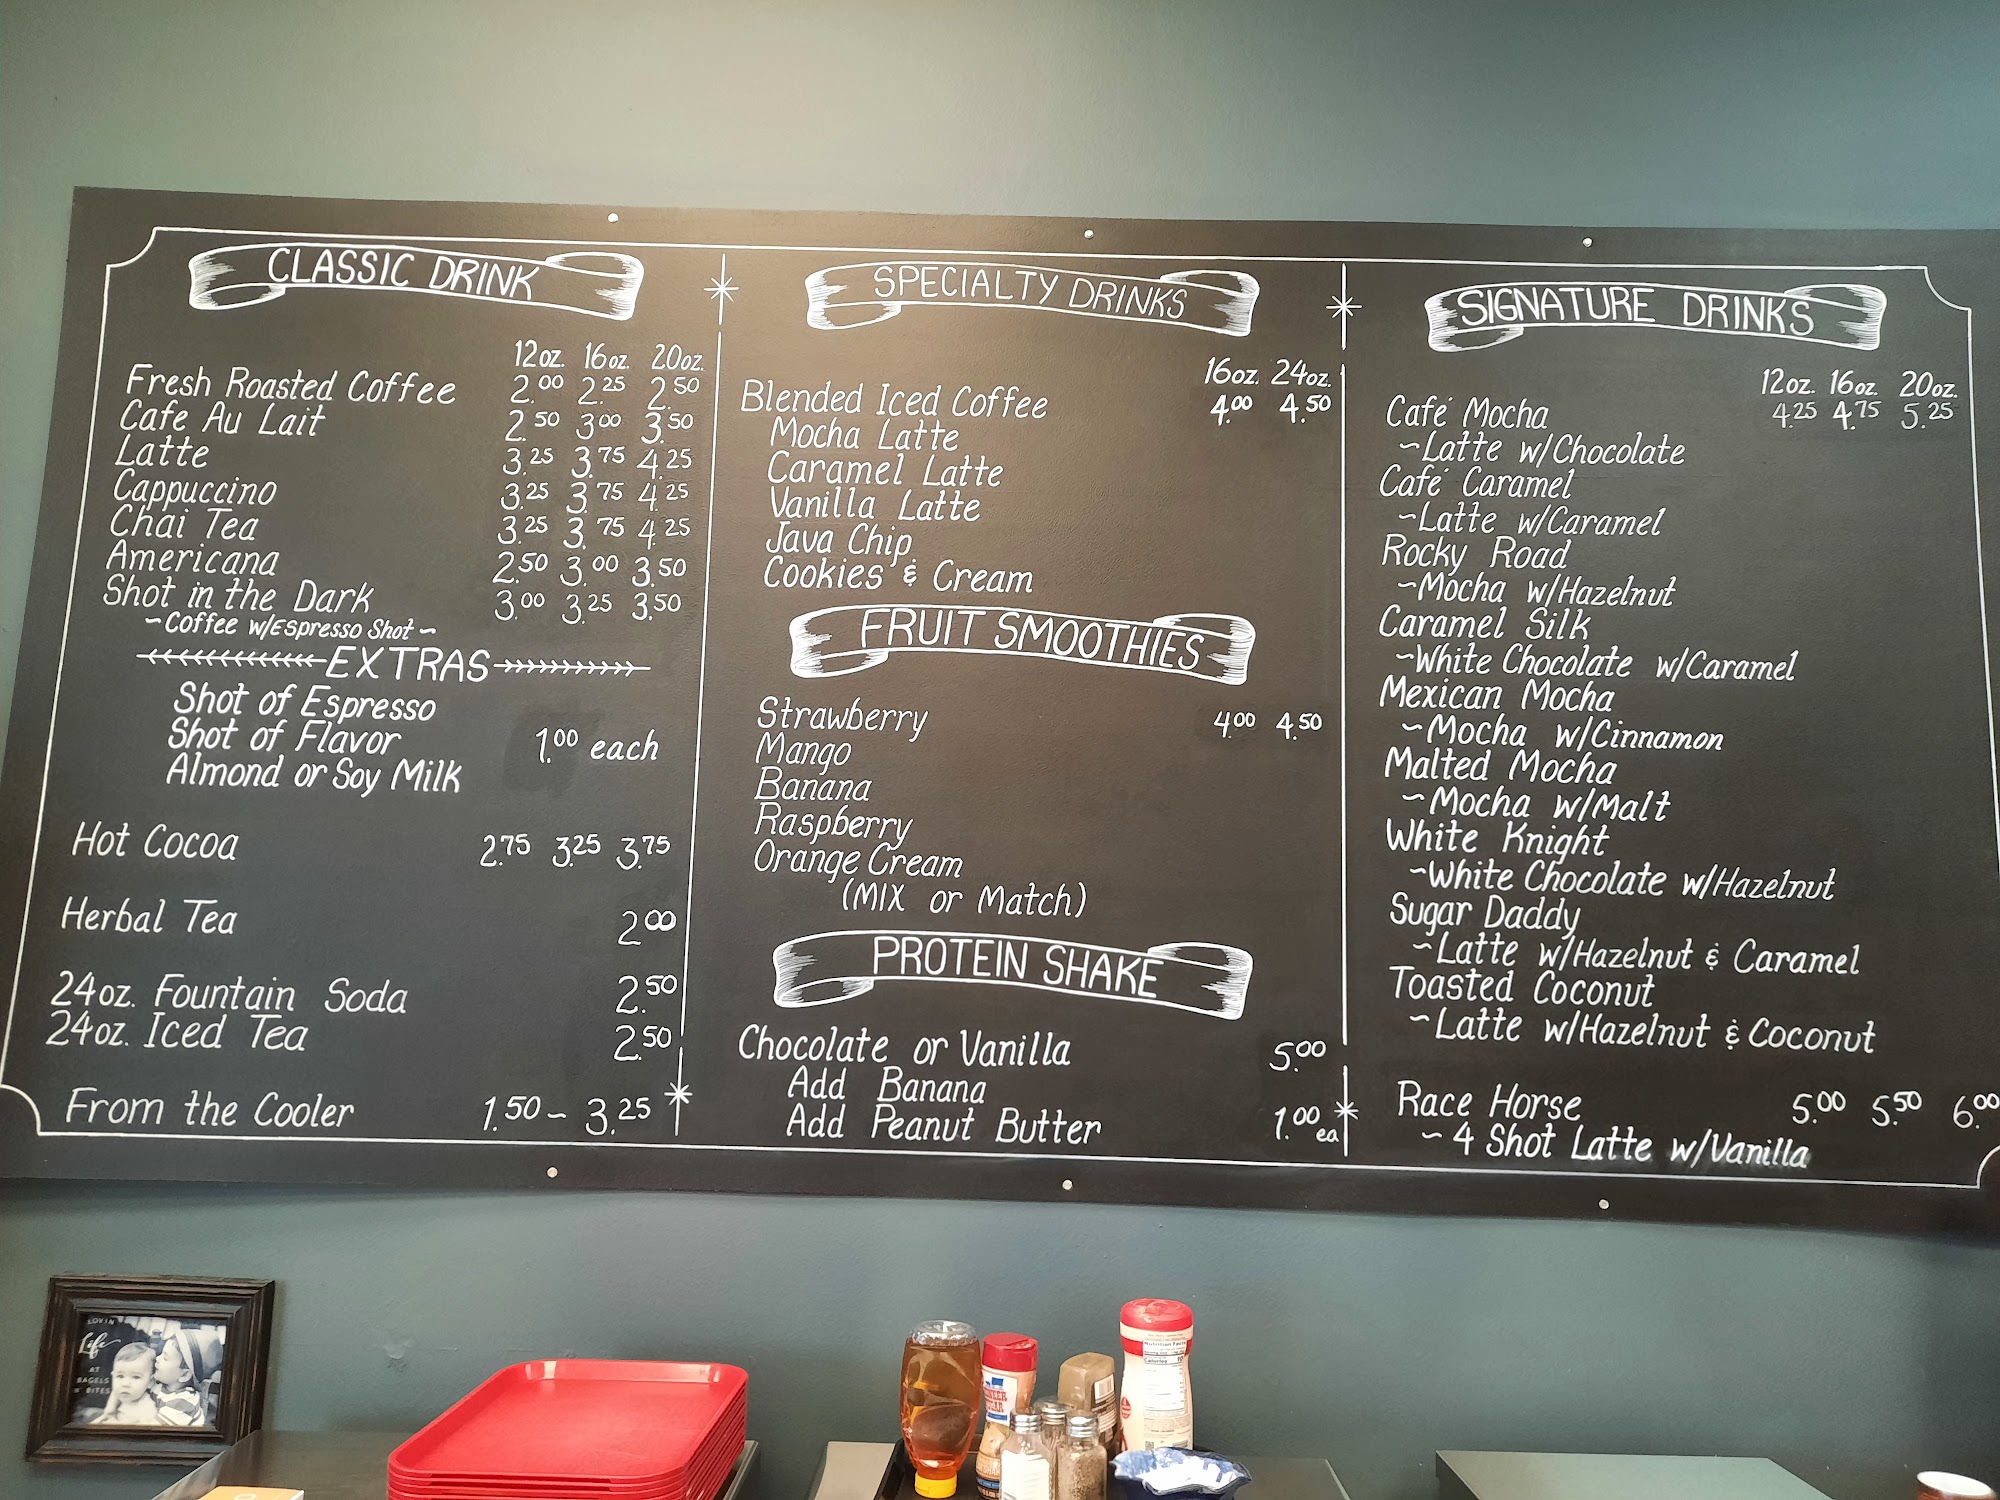 CLASSIC DRINK
12oz. 16oz. 20oz.
Fresh Roasted Coffee 2.00 2.25 2.50
Cafe Au Lait 2.50 3.00 3.50
Latte 3.25 3.75 4.25
Cappuccino 3.25 3.75 4.25
Chai Tea 3.25 3.75 4.25
Americana 2.50 3.00 3.50
Shot in the Dark 3.00 3.25 3.50
~Coffee w/Espresso Shot~
EXTRAS
Shot of Espresso
Shot of Flavor 1.00 each
Almond or Soy Milk
Hot Cocoa 2.75 3.25 3.75
Herbal Tea 2.00
24oz. Fountain Soda 2.50
24oz. Iced Tea 2.50
From the Cooler 1.50 - 3.25
SPECIALTY DRINKS
16oz. 24oz.
Blended Iced Coffee 4.00 4.50
Mocha Latte
Caramel Latte
Vanilla Latte
Java Chip
Cookies & Cream
FRUIT SMOOTHIES
Strawberry 4.00 4.50
Mango
Banana
Raspberry
Orange Cream
(MIX or Match)
PROTEIN SHAKE
Chocolate or Vanilla 5.00
Add Banana
Add Peanut Butter 1.00 ea
SIGNATURE DRINKS
12oz. 16oz. 20oz.
Café Mocha 4.25 4.75 5.25
~Latte w/Chocolate
Café Caramel
~Latte w/Caramel
Rocky Road
~Mocha w/Hazelnut
Caramel Silk
~White Chocolate w/Caramel
Mexican Mocha
~Mocha w/Cinnamon
Malted Mocha
~Mocha w/Malt
White Knight
~White Chocolate w/Hazelnut
Sugar Daddy
~Latte w/Hazelnut & Caramel
Toasted Coconut
~Latte w/Hazelnut & Coconut
Race Horse 5.00 5.50 6.00
~4 Shot Latte w/Vanilla
LOVIN
Life
AT
BAGELS
n' BITES
Nutrition Facts
Calories 10